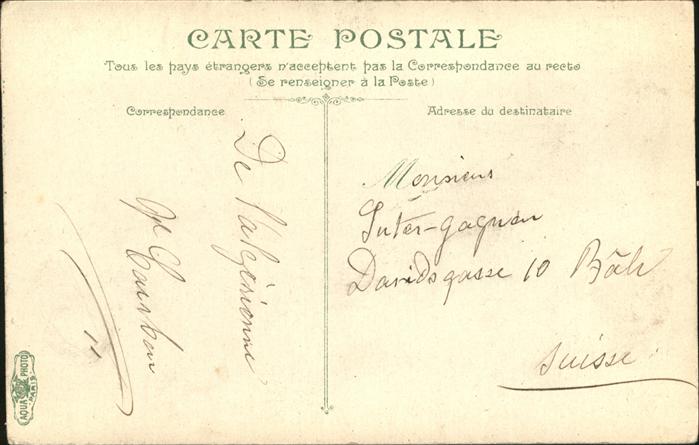 CARTE POSTALE
Tous les pays étrangers n'acceptent pas la Correspondance au recto
(Se renseigner à la Poste)
Correspondance
Adresse du destinataire
De l'algérienne
Monsieur
Suter-gagneu
Davidsgasse 10 Bâle
Suisse
AQUA PHOTO
PARIS